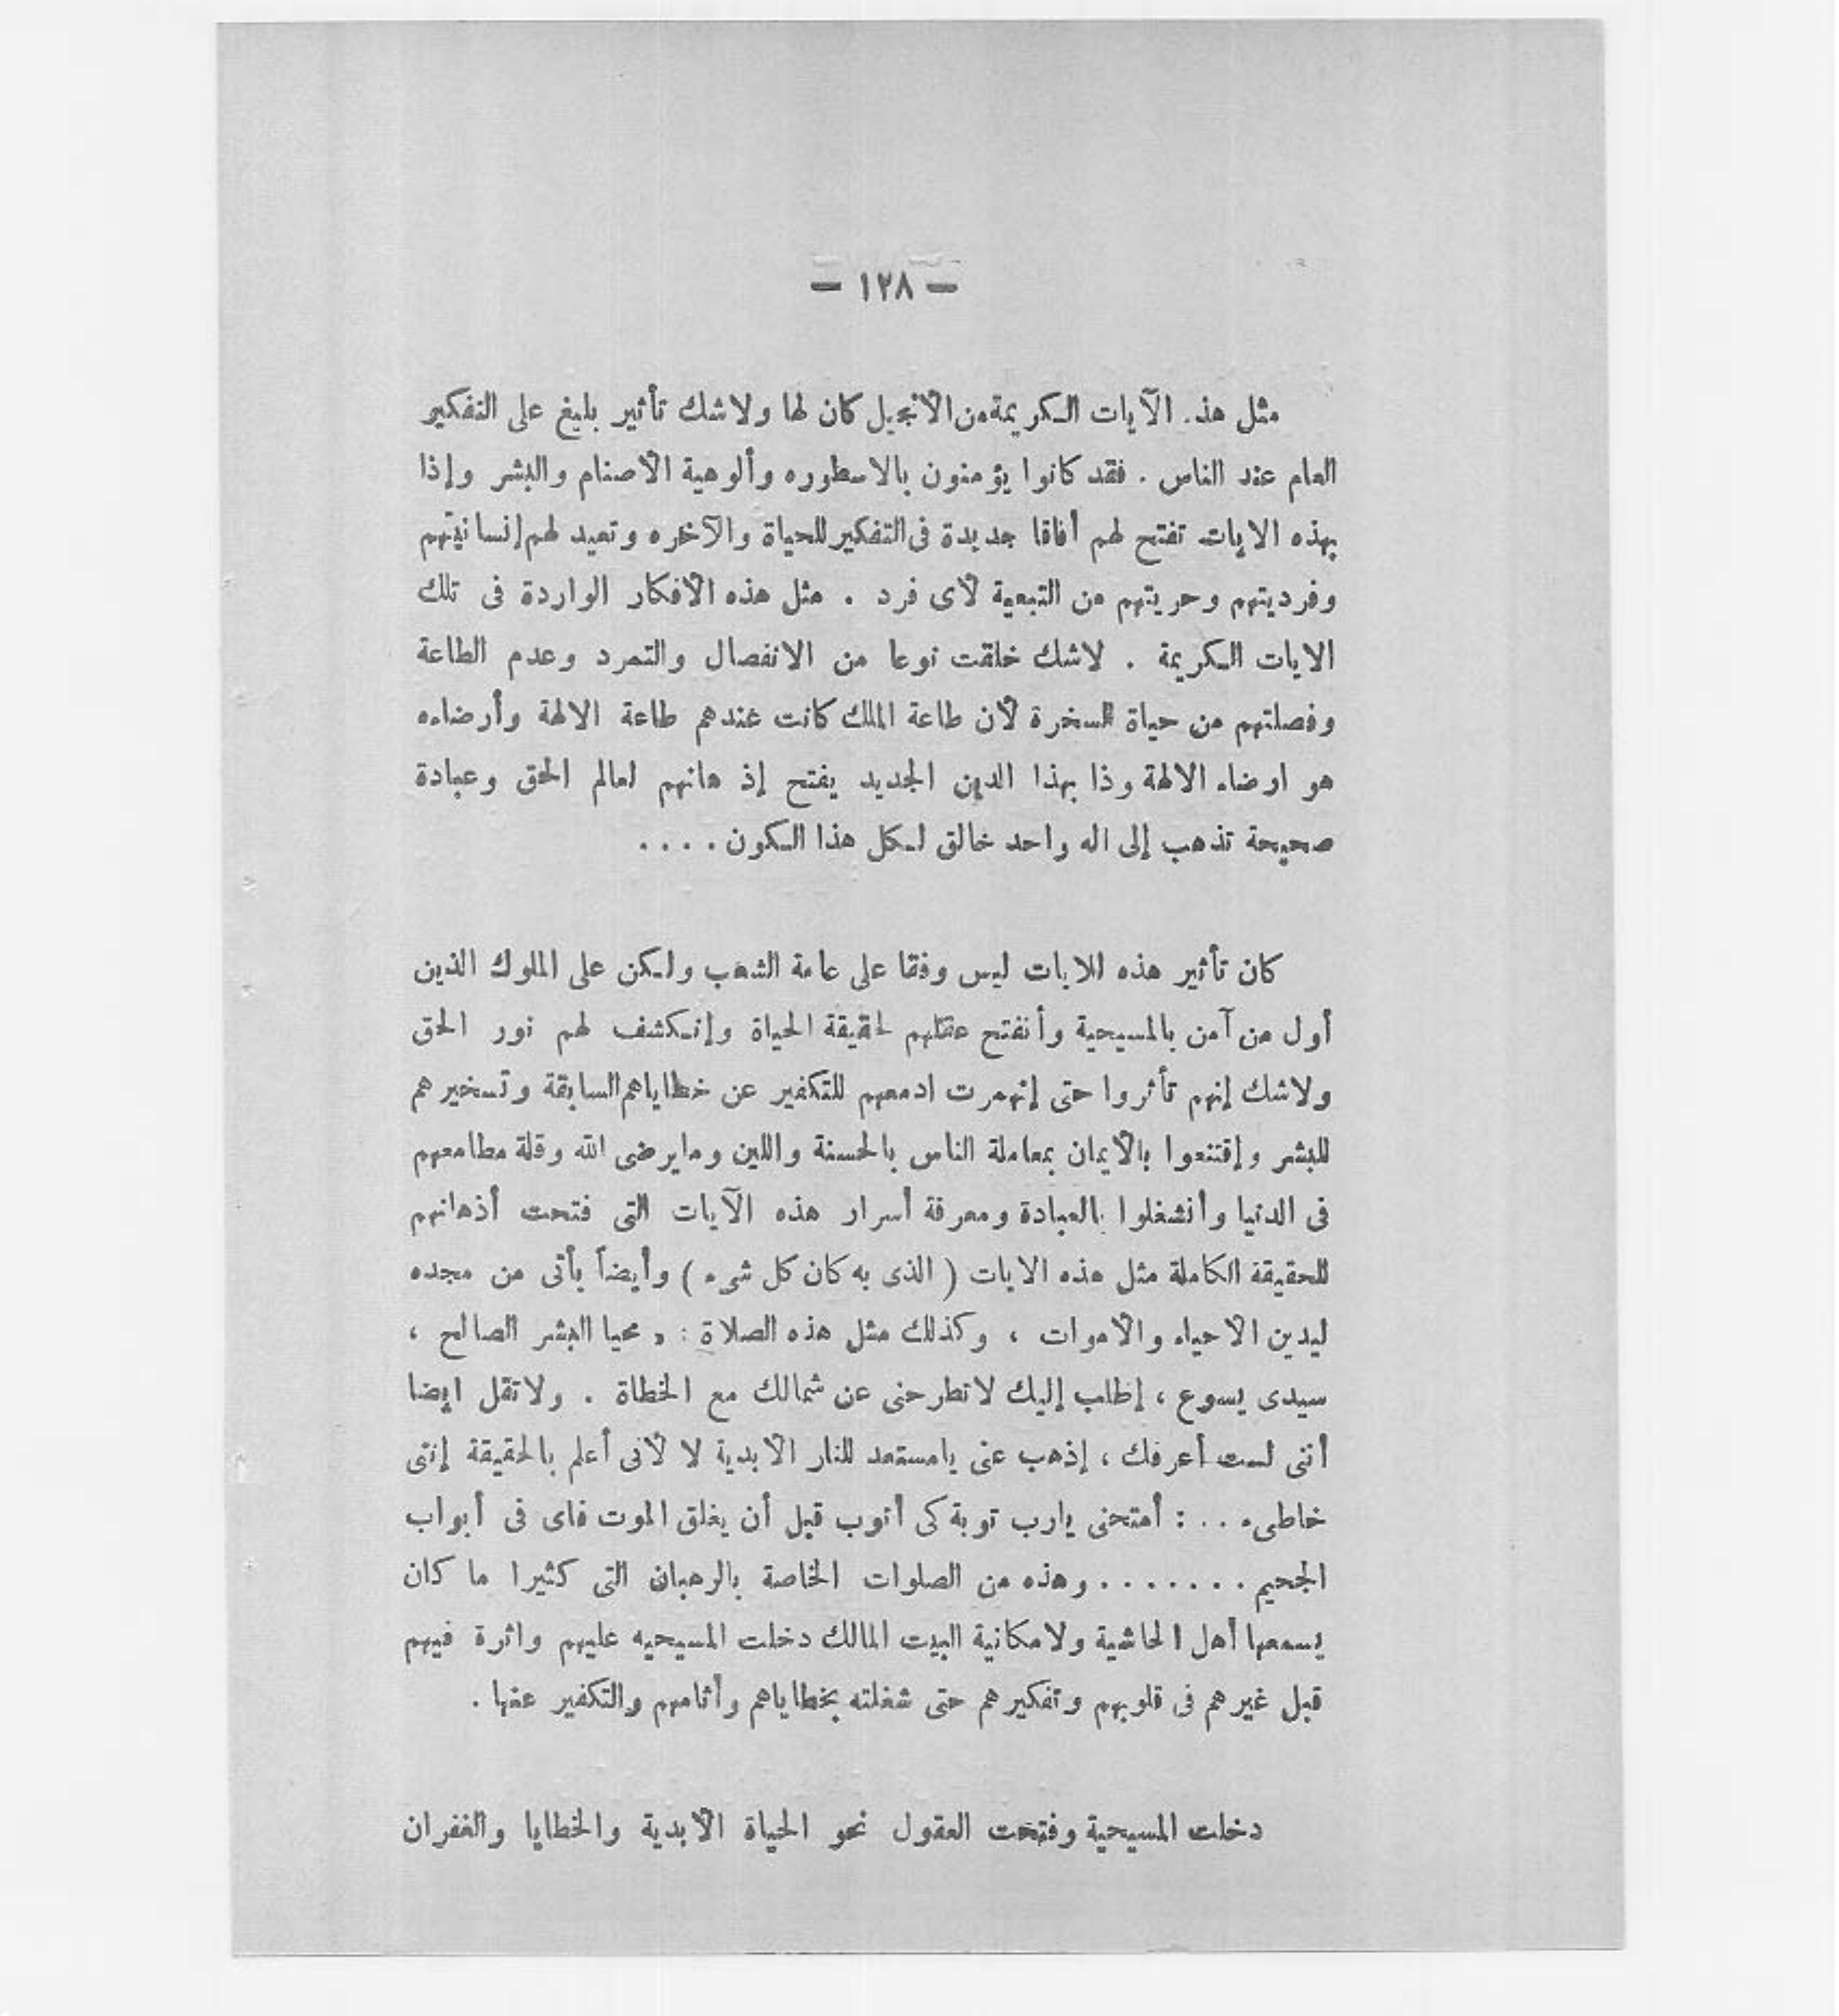 — ١٢٨ —
مثل هذه الآيات الكريمة من الأنجيل كان لها ولاشك تأثير بليغ على التفكير
العام عند الناس . فقد كانوا يؤمنون بالاسطوره وألوهية الأصنام والبشر وإذا
بهذه الايات تفتح لهم أفاقا جديدة فى التفكير للحياة والآخره وتعيد لهم إنسانيتهم
وفرديتهم وحريتهم من التبعية لأى فرد . مثل هذه الأفكار الواردة فى تلك
الايات الكريمة . لاشك خلقت نوعا من الانفصال والتمرد وعدم الطاعة
وفصلتهم من حياة السخرة لأن طاعة الملك كانت عندهم طاعة الالهة وأرضاءه
هو ارضاء الالهة وذا بهذا الدين الجديد يفتح إذ هانهم لعالم الحق وعبادة
صحيحة تذهب إلى اله واحد خالق لكل هذا الكون . . . .
كان تأثير هذه الايات ليس وفقا على عامة الشعب ولكن على الملوك الذين
أول من آمن بالمسيحية وأنفتح عقلهم لحقيقة الحياة وإنكشف لهم نور الحق
ولاشك إنهم تأثروا حتى إنهمرت ادمعهم للتكفير عن خطاياهم السابقة وتسخيرهم
للبشر وإقتنعوا بالأيمان بمعاملة الناس بالحسنة واللين ومايرضى الله وقلة مطامعهم
فى الدنيا وأنشغلوا بالعبادة ومعرفة أسرار هذه الآيات التى فتحت أذهانهم
للحقيقة الكاملة مثل هذه الايات ( الذى به كان كل شىء ) وأيضاً يأتى من مجده
ليدين الاحياء والأموات ، وكذلك مثل هذه الصلاة : « محيا البشر الصالح ،
سيدى يسوع ، إطلب إليك لاتطرحنى عن شمالك مع الخطاة . ولا تقل ايضا
أننى لست أعرفك ، إذهب عنى يامستعد للنار الأبدية لا لأنى أعلم بالحقيقة إننى
خاطىء . . : أمتحنى يارب توبة كى أتوب قبل أن يغلق الموت فاى فى أبواب
الجحيم . . . . . . . وهذه من الصلوات الخاصة بالرهبان التى كثيرا ما كان
يسمعها أهل الحاشية ولامكانية البيت المالك دخلت المسيحيه عليهم واثرة فيهم
قبل غيرهم فى قلوبهم وتفكيرهم حتى شغلته بخطاياهم وأثامهم والتكفير عنها .
دخلت المسيحية وفتحت العقول نحو الحياة الأبدية والخطايا والغفران